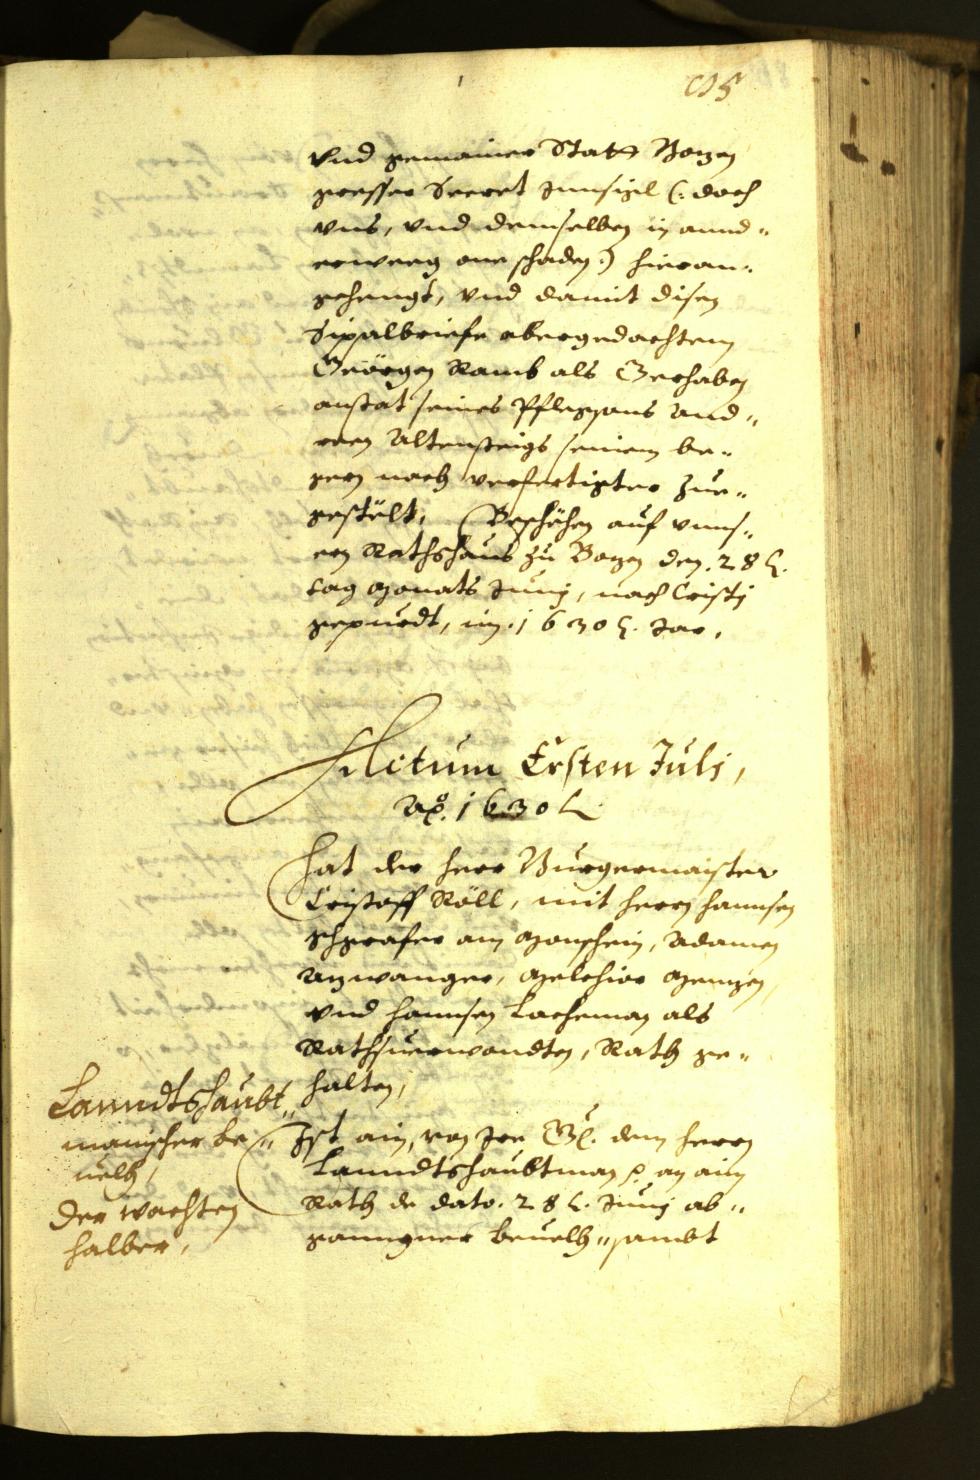 115
Vnd gemainer Statt Bozen
gresser Secret Innsigl (: doch
vns, vnd demselben in annd„
erweeg one schaden:) hieran„
gehengt, vnd damit disen
Sigalbriefe obergedachtem
Geörgen Ramb als Gerhaben
anstat seines Pflegsons And„
reen Altensteigs seinem be„
gern nach verfertigter zue„
gestölt, Beschehen auf vnns„
ern Rathshaus zu Bozen den .28ᵗ.
tag Monats Junij, nach Cristj
gepurdt, im .1630ᵗ. Jar.
Actum Ersten Julj,
Aº. 1630ᵗ.
Hat der Herr Burgermaister
Cristoff Röll, mit herrn Hannsen
Schgrafer am Monschein, Adamen
Anzwanger, Melchior Menzen,
Vnd Hannsen Lacheman als
Rathsuerwondten, Rath ge„
halten,
Lanndtshaubt„
manischer be„
uelh,
der wachten
halber,
Ist ain, von Irer Gᵉ. dem herrn
Lanndtshaubtman p. an ain
Rath de dato. 28ᵗ. Junij ab„
ganngner beuelh„ sambt